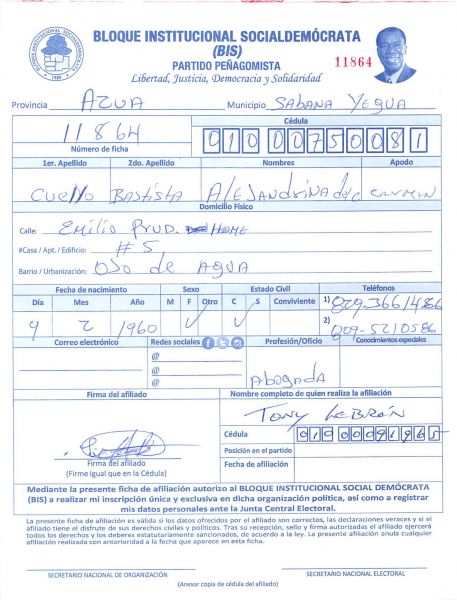 BLOQUE INSTITUCIONAL SOCIALDEMÓCRATA
(BIS)
PARTIDO PEÑAGOMISTA 11864
Libertad, Justicia, Democracia y Solidaridad
Provincia AZUA Municipio SABANA YEGUA
11864 Cédula
Número de ficha 01000750081
1er. Apellido 2do. Apellido Nombres Apodo
Cuello Bastista Alejandrina del Carmen
Domicilio Físico
Calle: Emilio Prud. Home
#Casa / Apt. / Edificio: #5
Barrio / Urbanización: Ojo de Agua
Fecha de nacimiento Sexo Estado Civil Teléfonos
Día Mes Año M F Otro C S Conviviente 1) 829-3661486
4 2 1960 ✓ ✓ 2) 809-5210586
Correo electrónico Redes sociales Profesión/Oficio Conocimientos especiales
@
@ Abogada
@
Firma del afiliado Nombre completo de quien realiza la afiliación
Tony Lebrón
Cédula 01900091965
Posición en el partido
Firma del afiliado Fecha de afiliación
(Firme igual que en la Cédula)
Mediante la presente ficha de afiliación autorizo al BLOQUE INSTITUCIONAL SOCIAL DEMÓCRATA
(BIS) a realizar mi inscripción única y exclusiva en dicha organización política, así como a registrar
mis datos personales ante la Junta Central Electoral.
La presente ficha de afiliación es válida si los datos ofrecidos por el afiliado son correctos, las declaraciones veraces y si el
afiliado tiene el disfrute de sus derechos civiles y políticos. Tras su recepción, sello y firma autorizadas el afiliado ejercerá
todos los derechos y los deberes estatutariamente sancionados, de acuerdo a la ley. La presente afiliación anula cualquier
afiliación realizada con anterioridad a la fecha que aparece en esta ficha.
SECRETARIO NACIONAL DE ORGANIZACIÓN SECRETARIO NACIONAL ELECTORAL
(Anexar copia de cédula del afiliado)